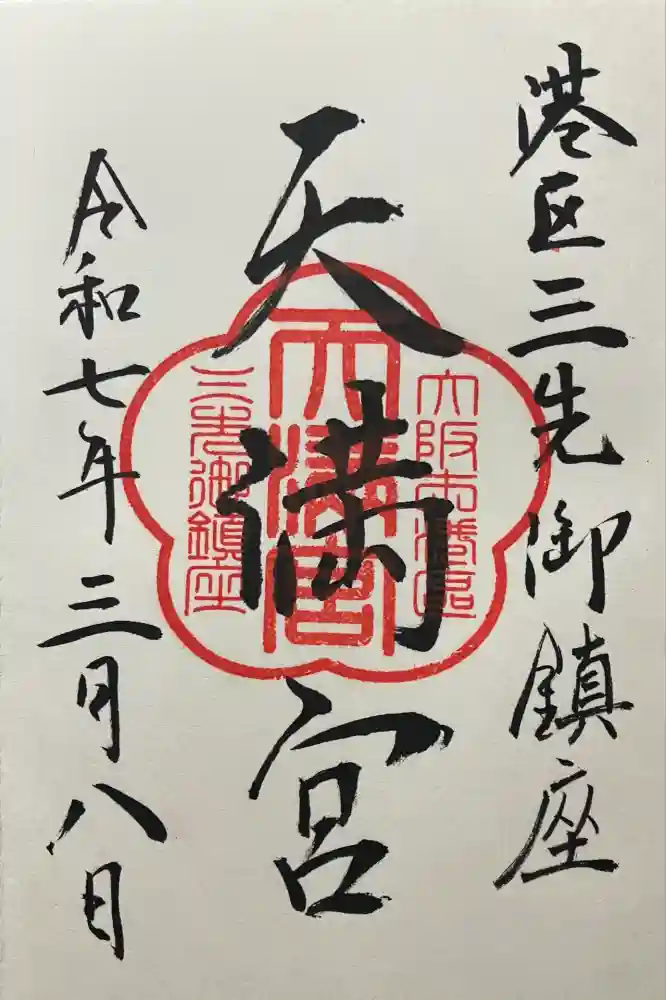 港区三先御鎮座
天満宮
大阪市港区
天満宮
三先御鎮座
令和七年三月八日